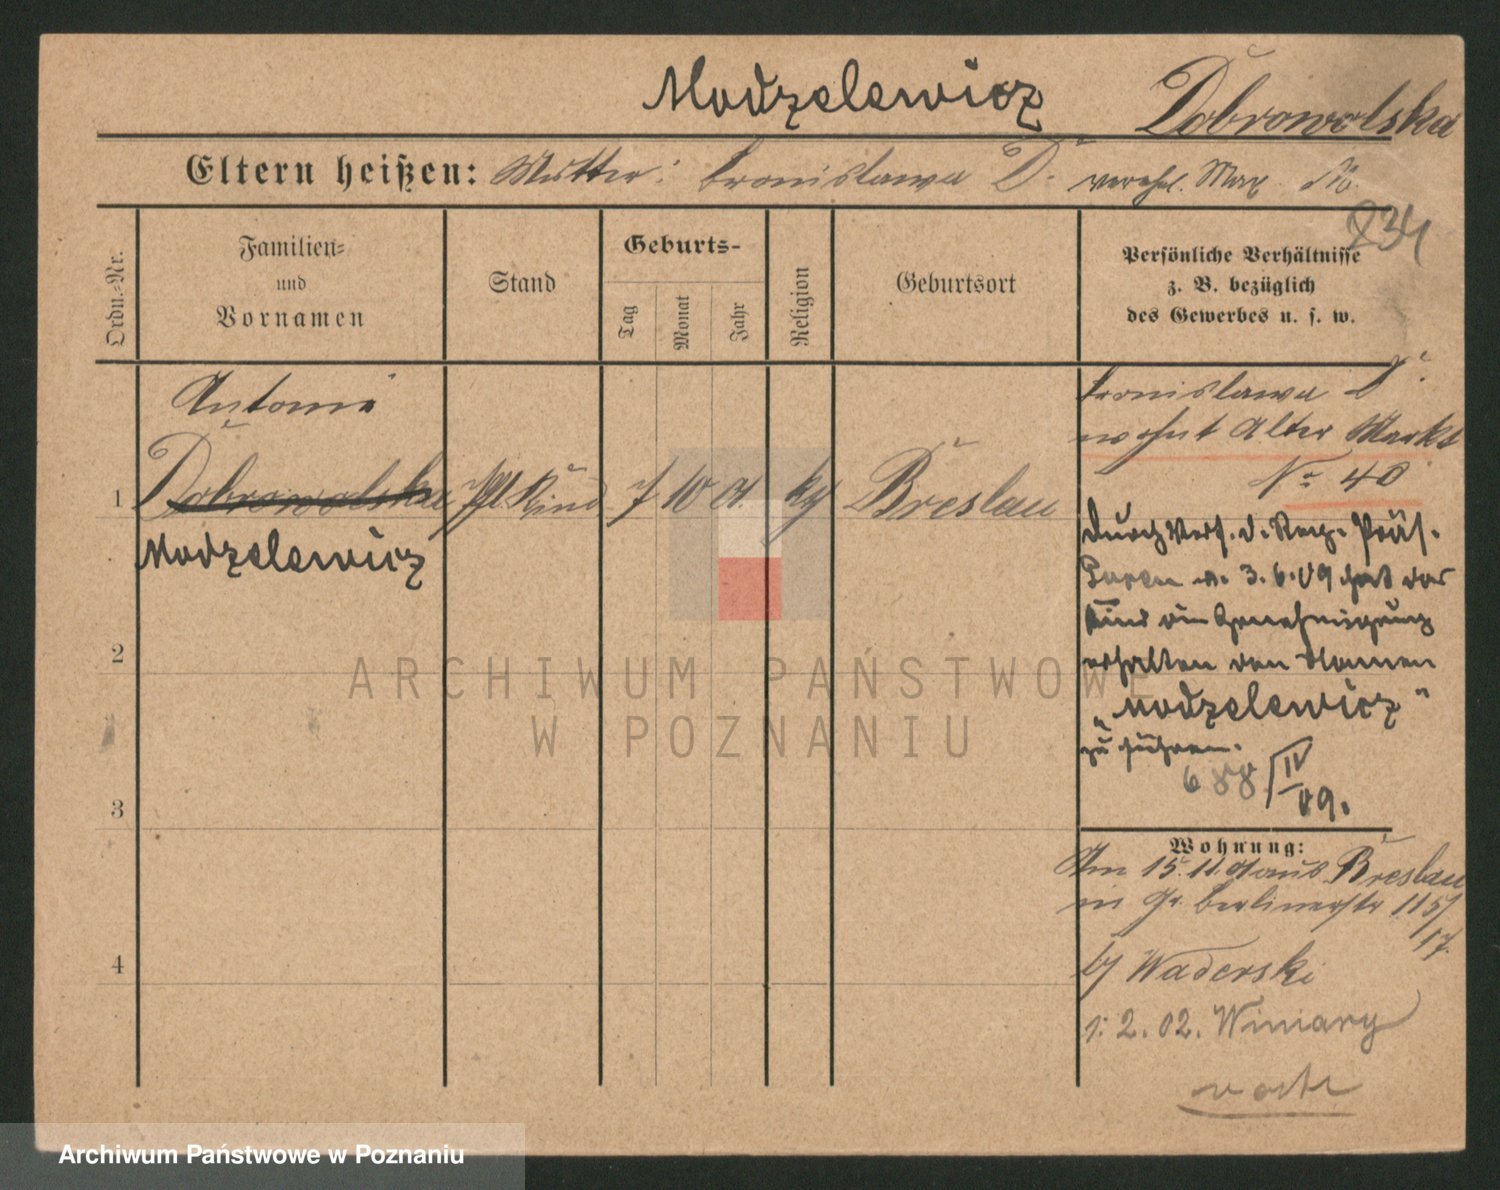 Modzelewicz Dobrowolska
Eltern heißen: Mutter: Bronislawa D. verehel. Max. M.
234
Ordn.-Nr.
Familien-
und
Vornamen
Stand
Geburts-
Tag
Monat
Jahr
Religion
Geburtsort
Persönliche Verhältnisse
z. B. bezüglich
des Gewerbes u. s. w.
1
Antonie
Dobrowolska
Modzelewicz
Pfl. Kind
7 10 01. kg Breslau
2
3
4
Bronislawa D.
wohnt Alter Markt
No 40
Durch Verf. d. Reg. Präs.
Posen v. 3.6.09 hat das
Kind die Genehmigung
erhalten den Namen
„Modzelewicz"
zu führen.
688 IV
09.
Wohnung:
Am 15.11.01 aus Breslau
in Gr. Berlinerstr 115/
17.
by Waderski
1. 2. 02. Winiary
ARCHIWUM PAŃSTWOWE
W POZNANIU
Archiwum Państwowe w Poznaniu